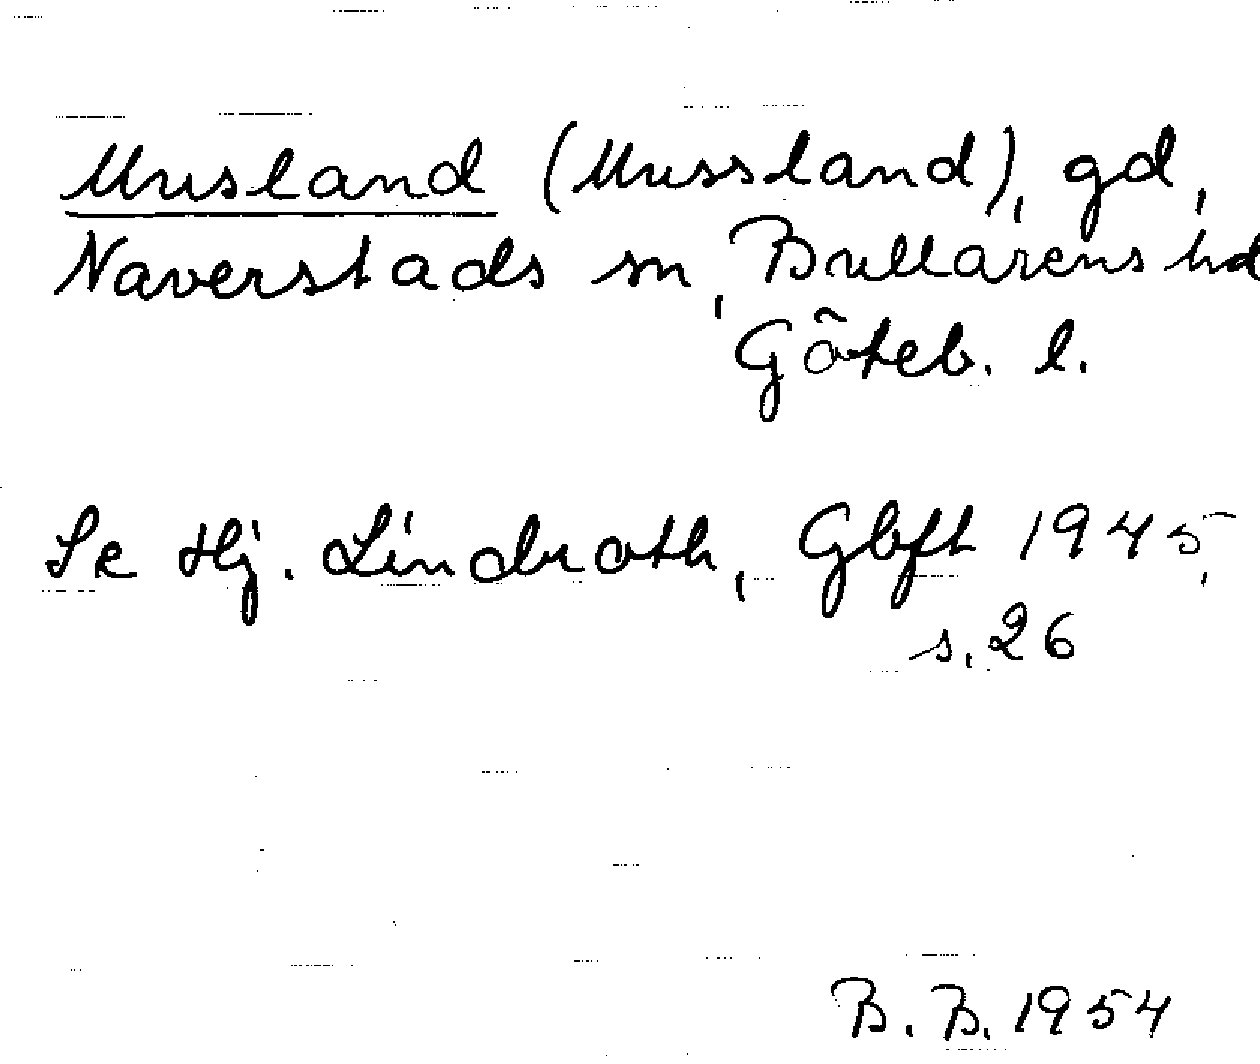 Musland (Mussland), gd,
Naverstads sn, Bullarens hd
Göteb. l.
Se Hj. Lindroth, Gbft 1945,
s. 26
B. B. 1954